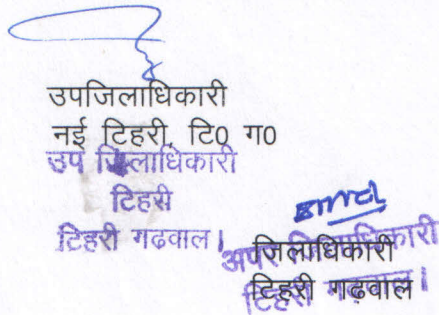 उपजिलाधिकारी
नई टिहरी, टि0 ग0
उप जिलाधिकारी
टिहरी
टिहरी गढवाल।
अपर जिलाधिकारी
टिहरी गढवाल।
जिलाधिकारी
टिहरी गढवाल